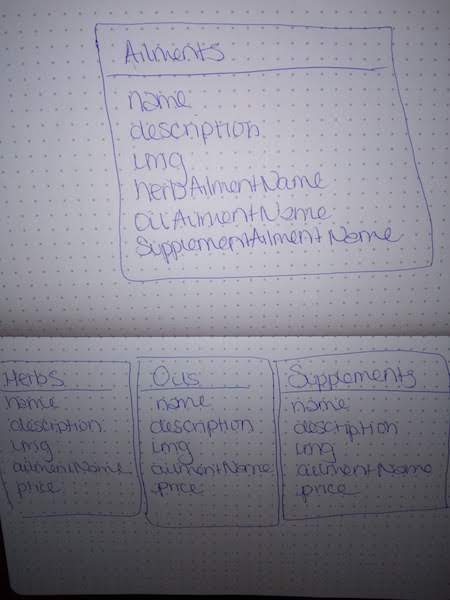 Ailments
name
description
img
herbAilmentName
oilAilmentName
SupplementAilmentName
Herbs
name
description
img
ailmentName
price
Oils
name
description
img
ailmentName
price
Supplements
name
description
img
ailmentName
price